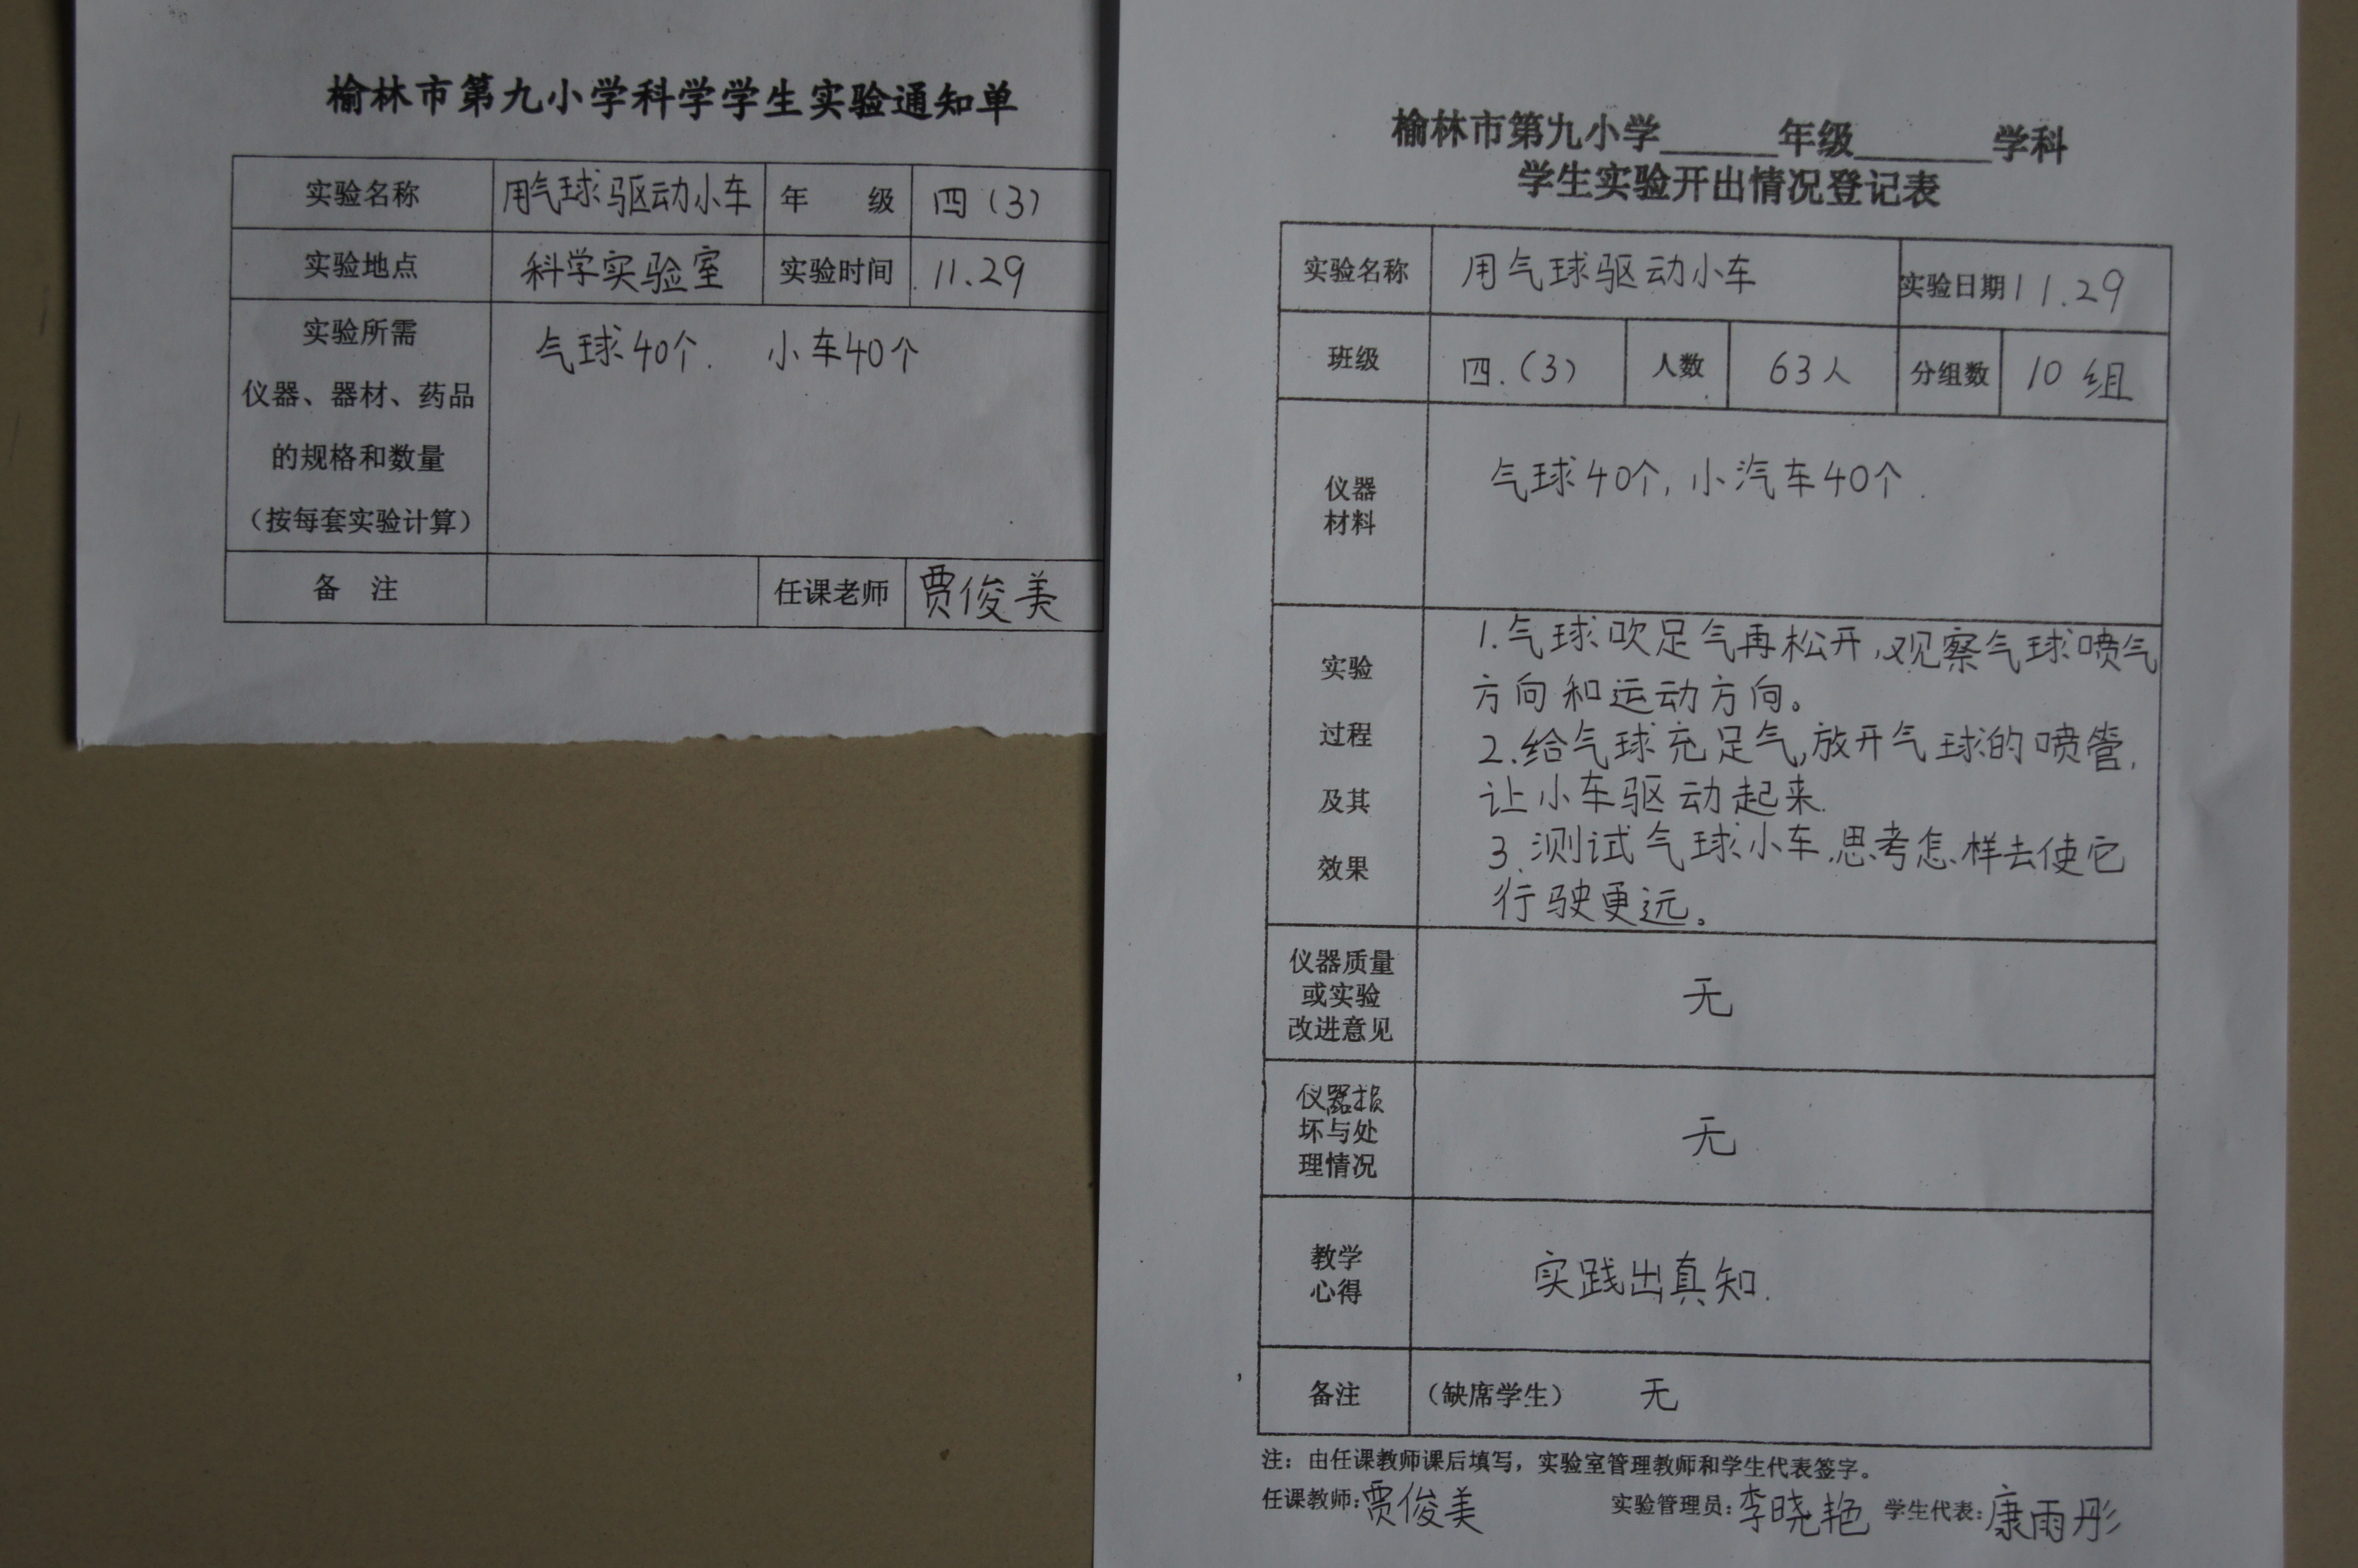 榆林市第九小学科学学生实验通知单
实验名称 用气球驱动小车 年 级 四（3）
实验地点 科学实验室 实验时间 11.29
实验所需
仪器、器材、药品
的规格和数量
（按每套实验计算）
气球40个. 小车40个
备 注 任课老师 贾俊美
榆林市第九小学______年级_______学科
学生实验开出情况登记表
实验名称 用气球驱动小车 实验日期 11.29
班级 四.（3） 人数 63人 分组数 10组
仪器
材料
气球40个, 小汽车40个.
实验
过程
及其
效果
1.气球吹足气再松开,观察气球喷气
方向和运动方向。
2.给气球充足气,放开气球的喷管,
让小车驱动起来.
3.测试气球小车.思考怎样去使它
行驶更远。
仪器质量
或实验
改进意见
无
仪器损
坏与处
理情况
无
教学
心得
实践出真知.
备注 （缺席学生） 无
注：由任课教师课后填写，实验室管理教师和学生代表签字。
任课教师:贾俊美 实验管理员:李晓艳 学生代表:康雨彤